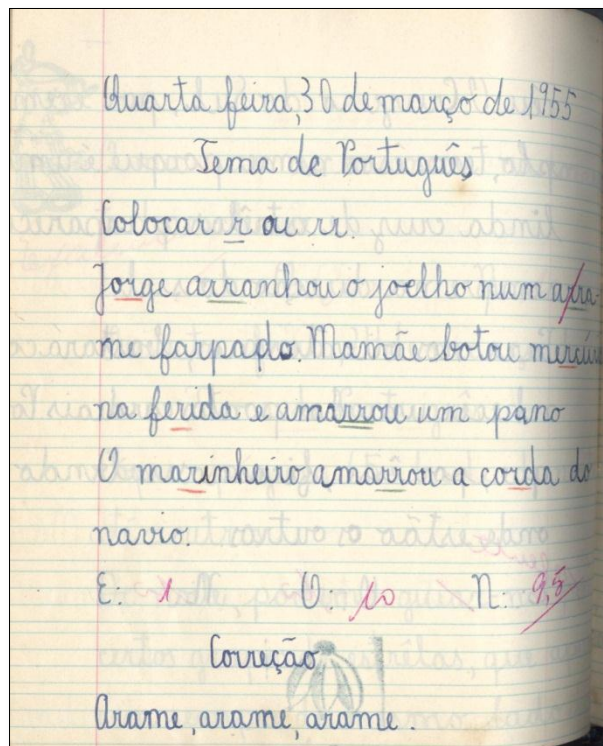 Quarta feira, 30 de março de 1955
Tema de Português
Colocar r ou rr.
Jorge arranhou o joelho num arra-
me farpado. Mamãe botou mercúrio
na ferida e amarrou um pano
O marinheiro amarrou a corda do
navio.
E: 1 O: 10 N: 9,5
Correção
Arame, arame, arame.